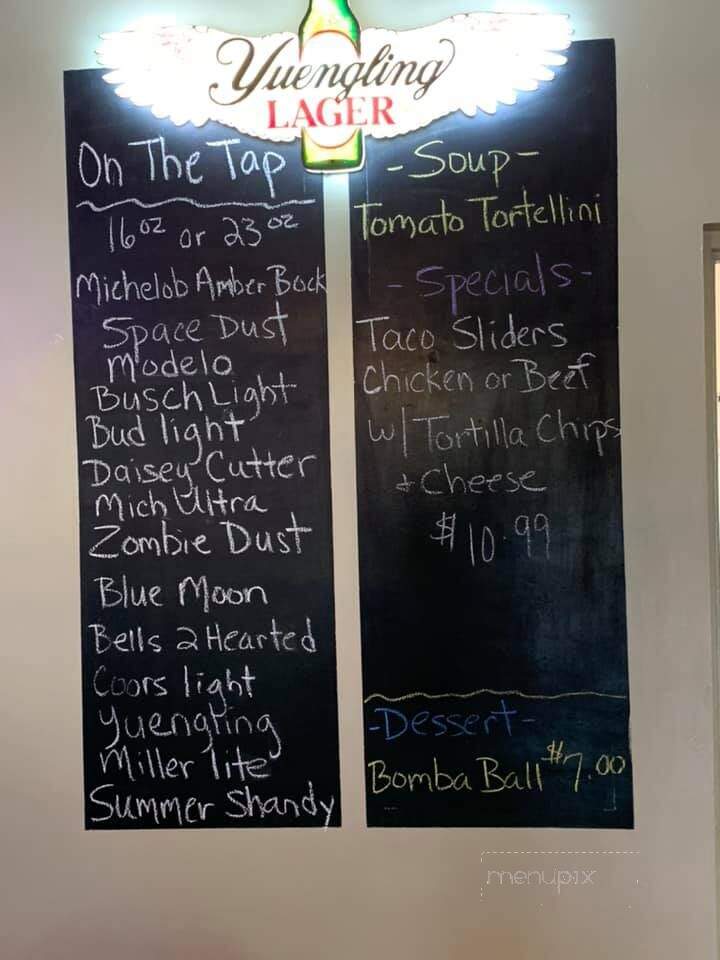 Yuengling
LAGER
On The Tap
16oz or 23oz
Michelob Amber Bock
Space Dust
Modelo
Busch Light
Bud light
Daisey Cutter
Mich Ultra
Zombie Dust
Blue Moon
Bells 2 Hearted
Coors light
Yuengling
Miller lite
Summer Shandy
-Soup-
Tomato Tortellini
-Specials-
Taco Sliders
Chicken or Beef
w/ Tortilla Chips
+ Cheese
$10.99
-Dessert-
Bomba Ball $7.00
menupix